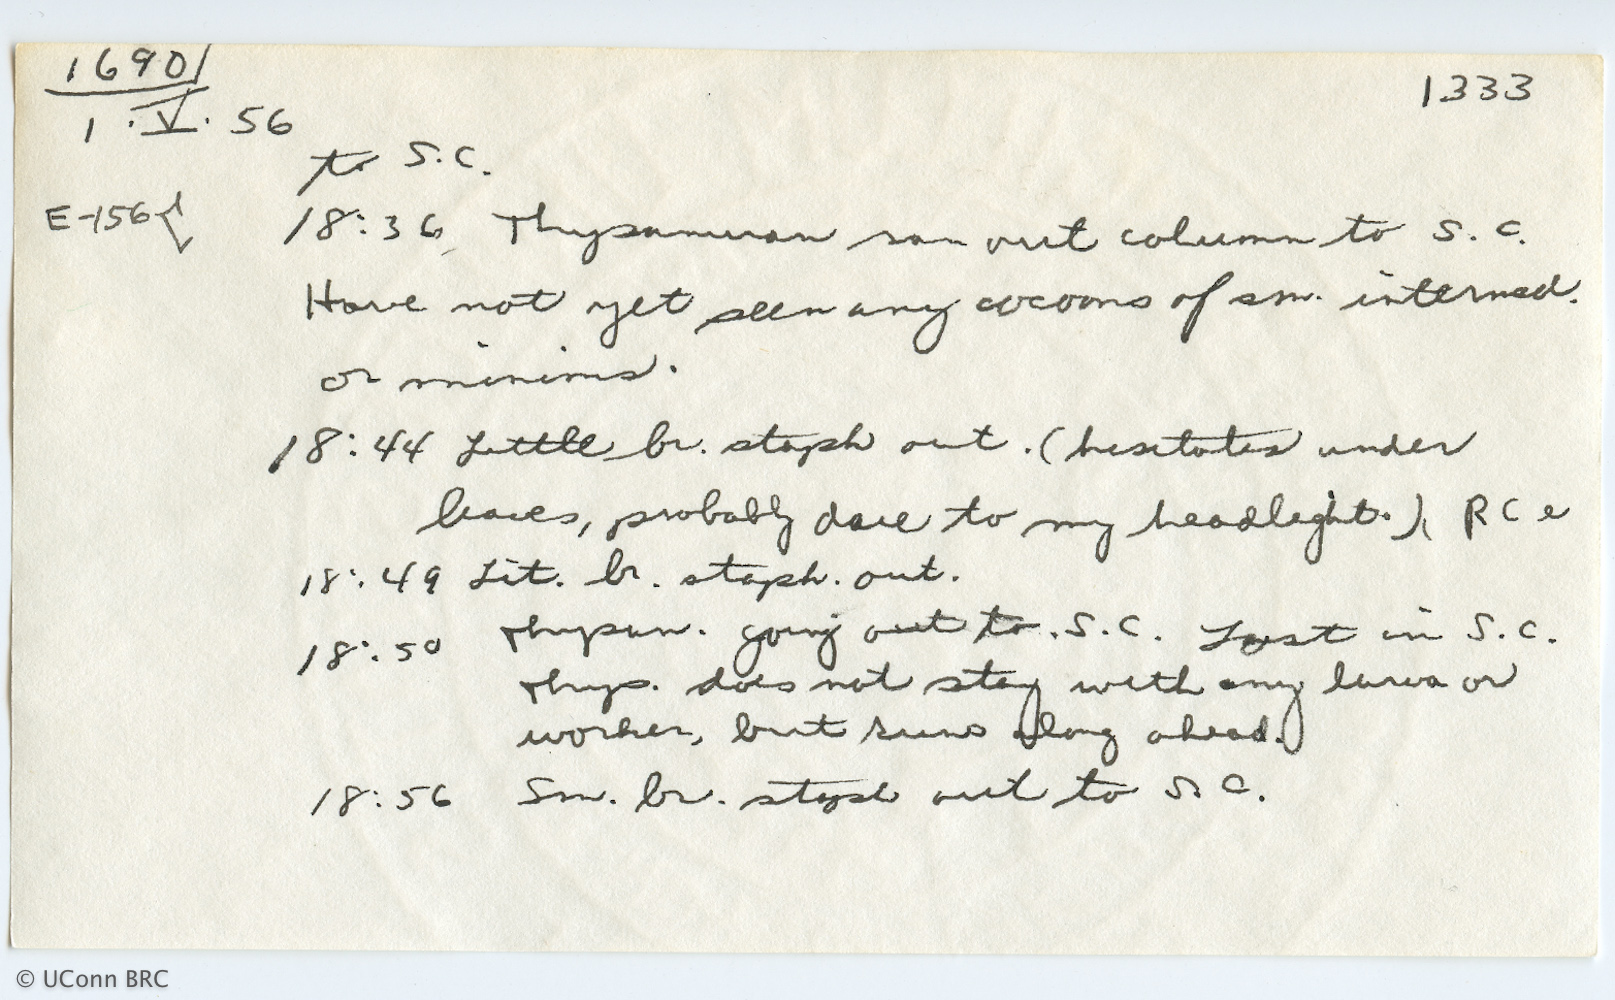 1690/
1333
1 . V . 56
to S.C.
E-156
18:36 Thysanuran ran out column to S.C.
Have not yet seen any cocoons of sm. intermed.
or minims.
18:44 Little br. staph out. (hesitates under
leaves, probably due to my headlight.)
18:49 Lit. br. staph. out.
18:50 Thysan. going out to S.C. Lost in S.C.
Thys. does not stay with any larva or
worker, but runs along ahead.
18:56 Sm. br. staph out to S.C.
© UConn BRC